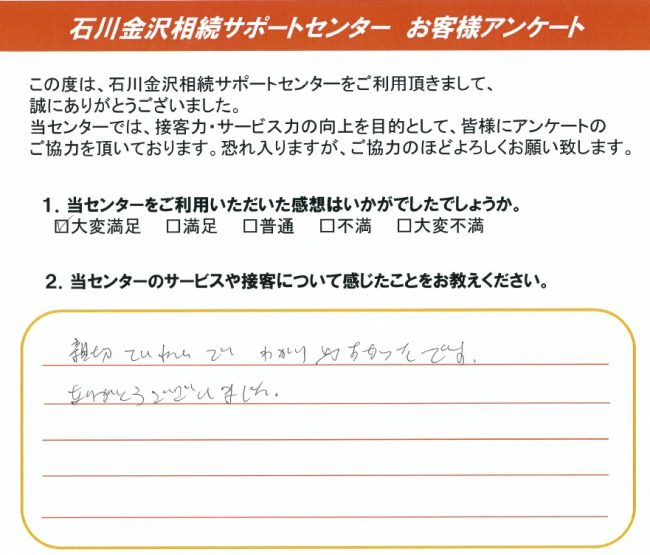 石川金沢相続サポートセンター お客様アンケート
この度は、石川金沢相続サポートセンターをご利用頂きまして、
誠にありがとうございました。
当センターでは、接客力・サービス力の向上を目的として、皆様にアンケートの
ご協力を頂いております。恐れ入りますが、ご協力のほどよろしくお願い致します。
1. 当センターをご利用いただいた感想はいかがでしたでしょうか。
☑大変満足 □満足 □普通 □不満 □大変不満
2. 当センターのサービスや接客について感じたことをお教えください。
親切ていねいでわかりやすかったです。
ありがとうございました。